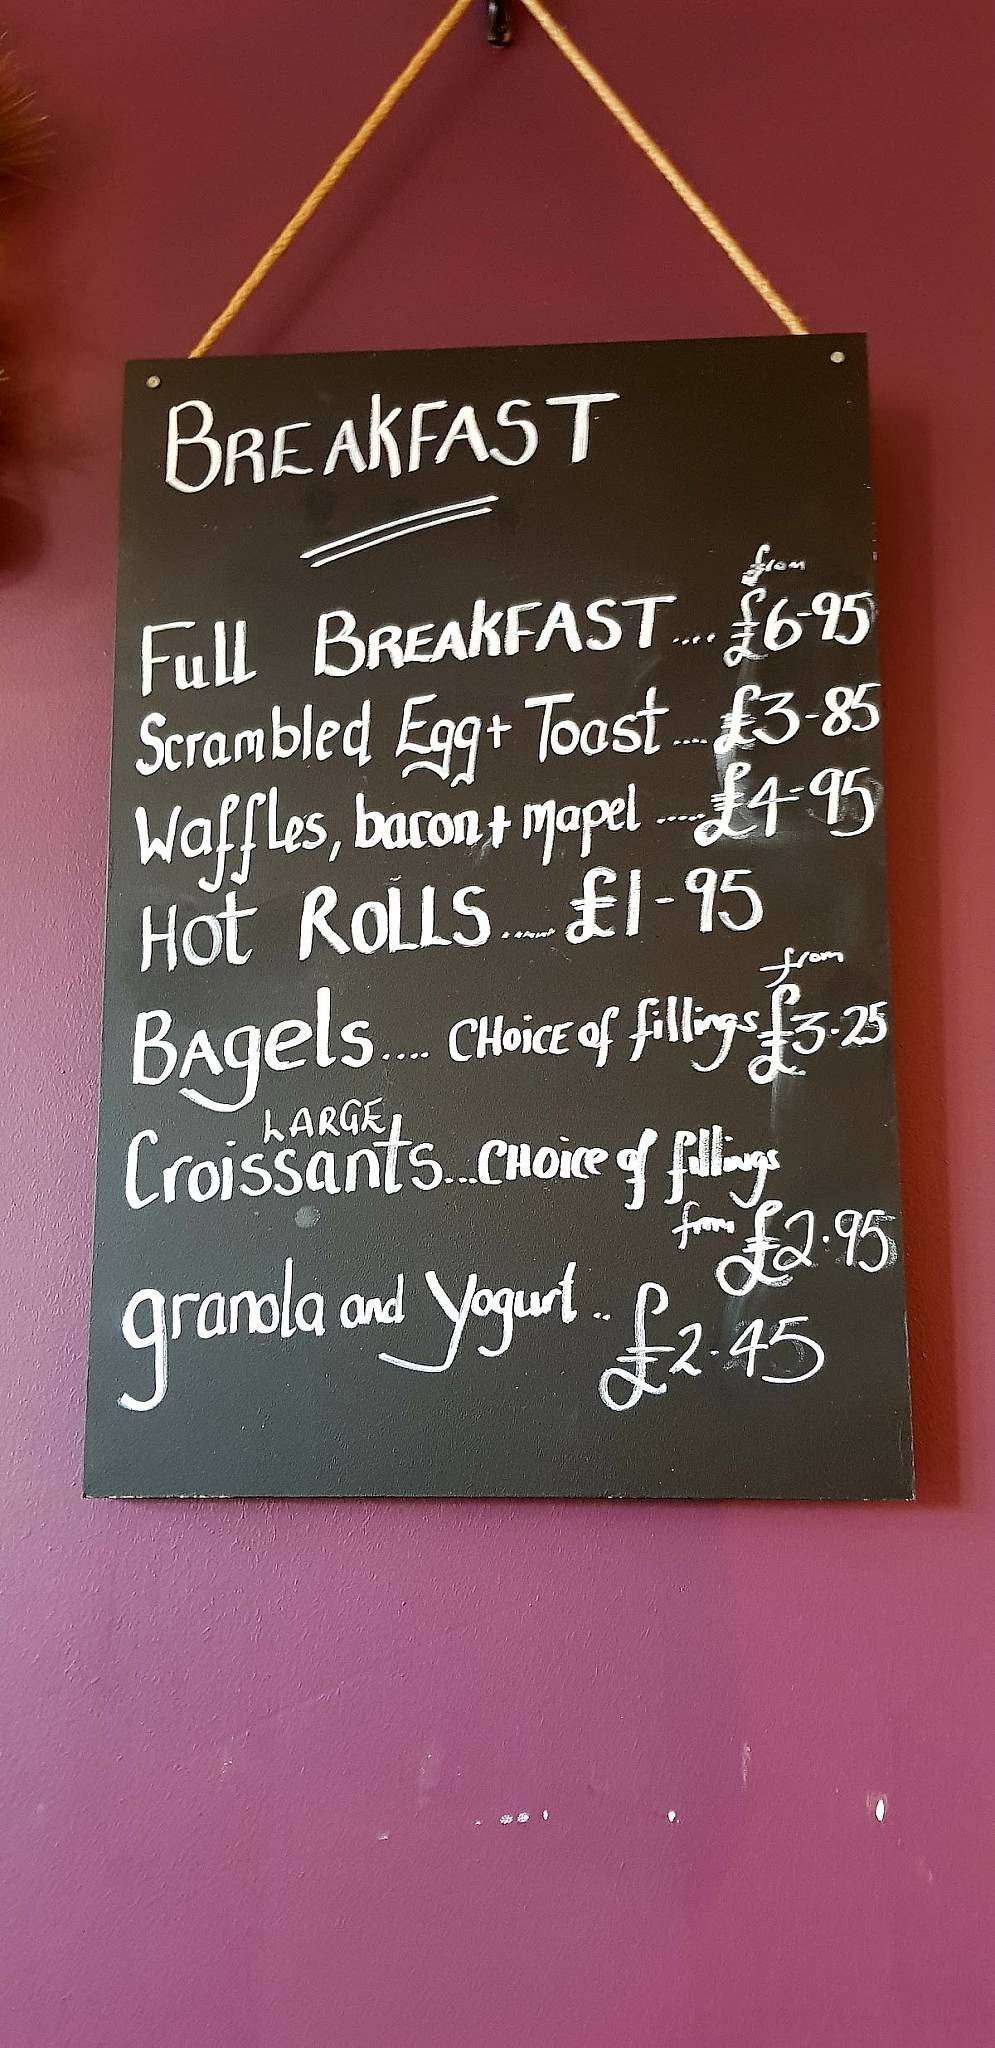 BREAKFAST
from
Full BREAKFAST.... £6-95
Scrambled Egg + Toast .... £3-85
Waffles, bacon + mapel ..... £4-95
Hot ROLLS ....... £1-95
from
BAgels.... CHOiCE of fillings £3.25
LARGE
Croissants...CHOice of fillings
from £2.95
granola and Yogurt .. £2.45